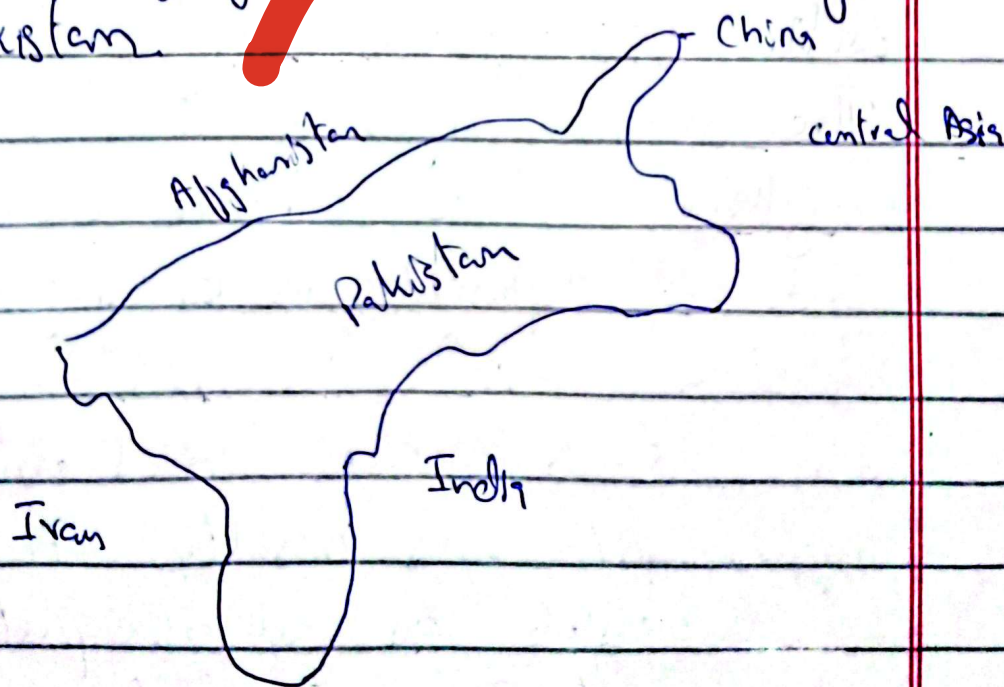 kistan
China
Central Asia
Afghanistan
Pakistan
India
Iran